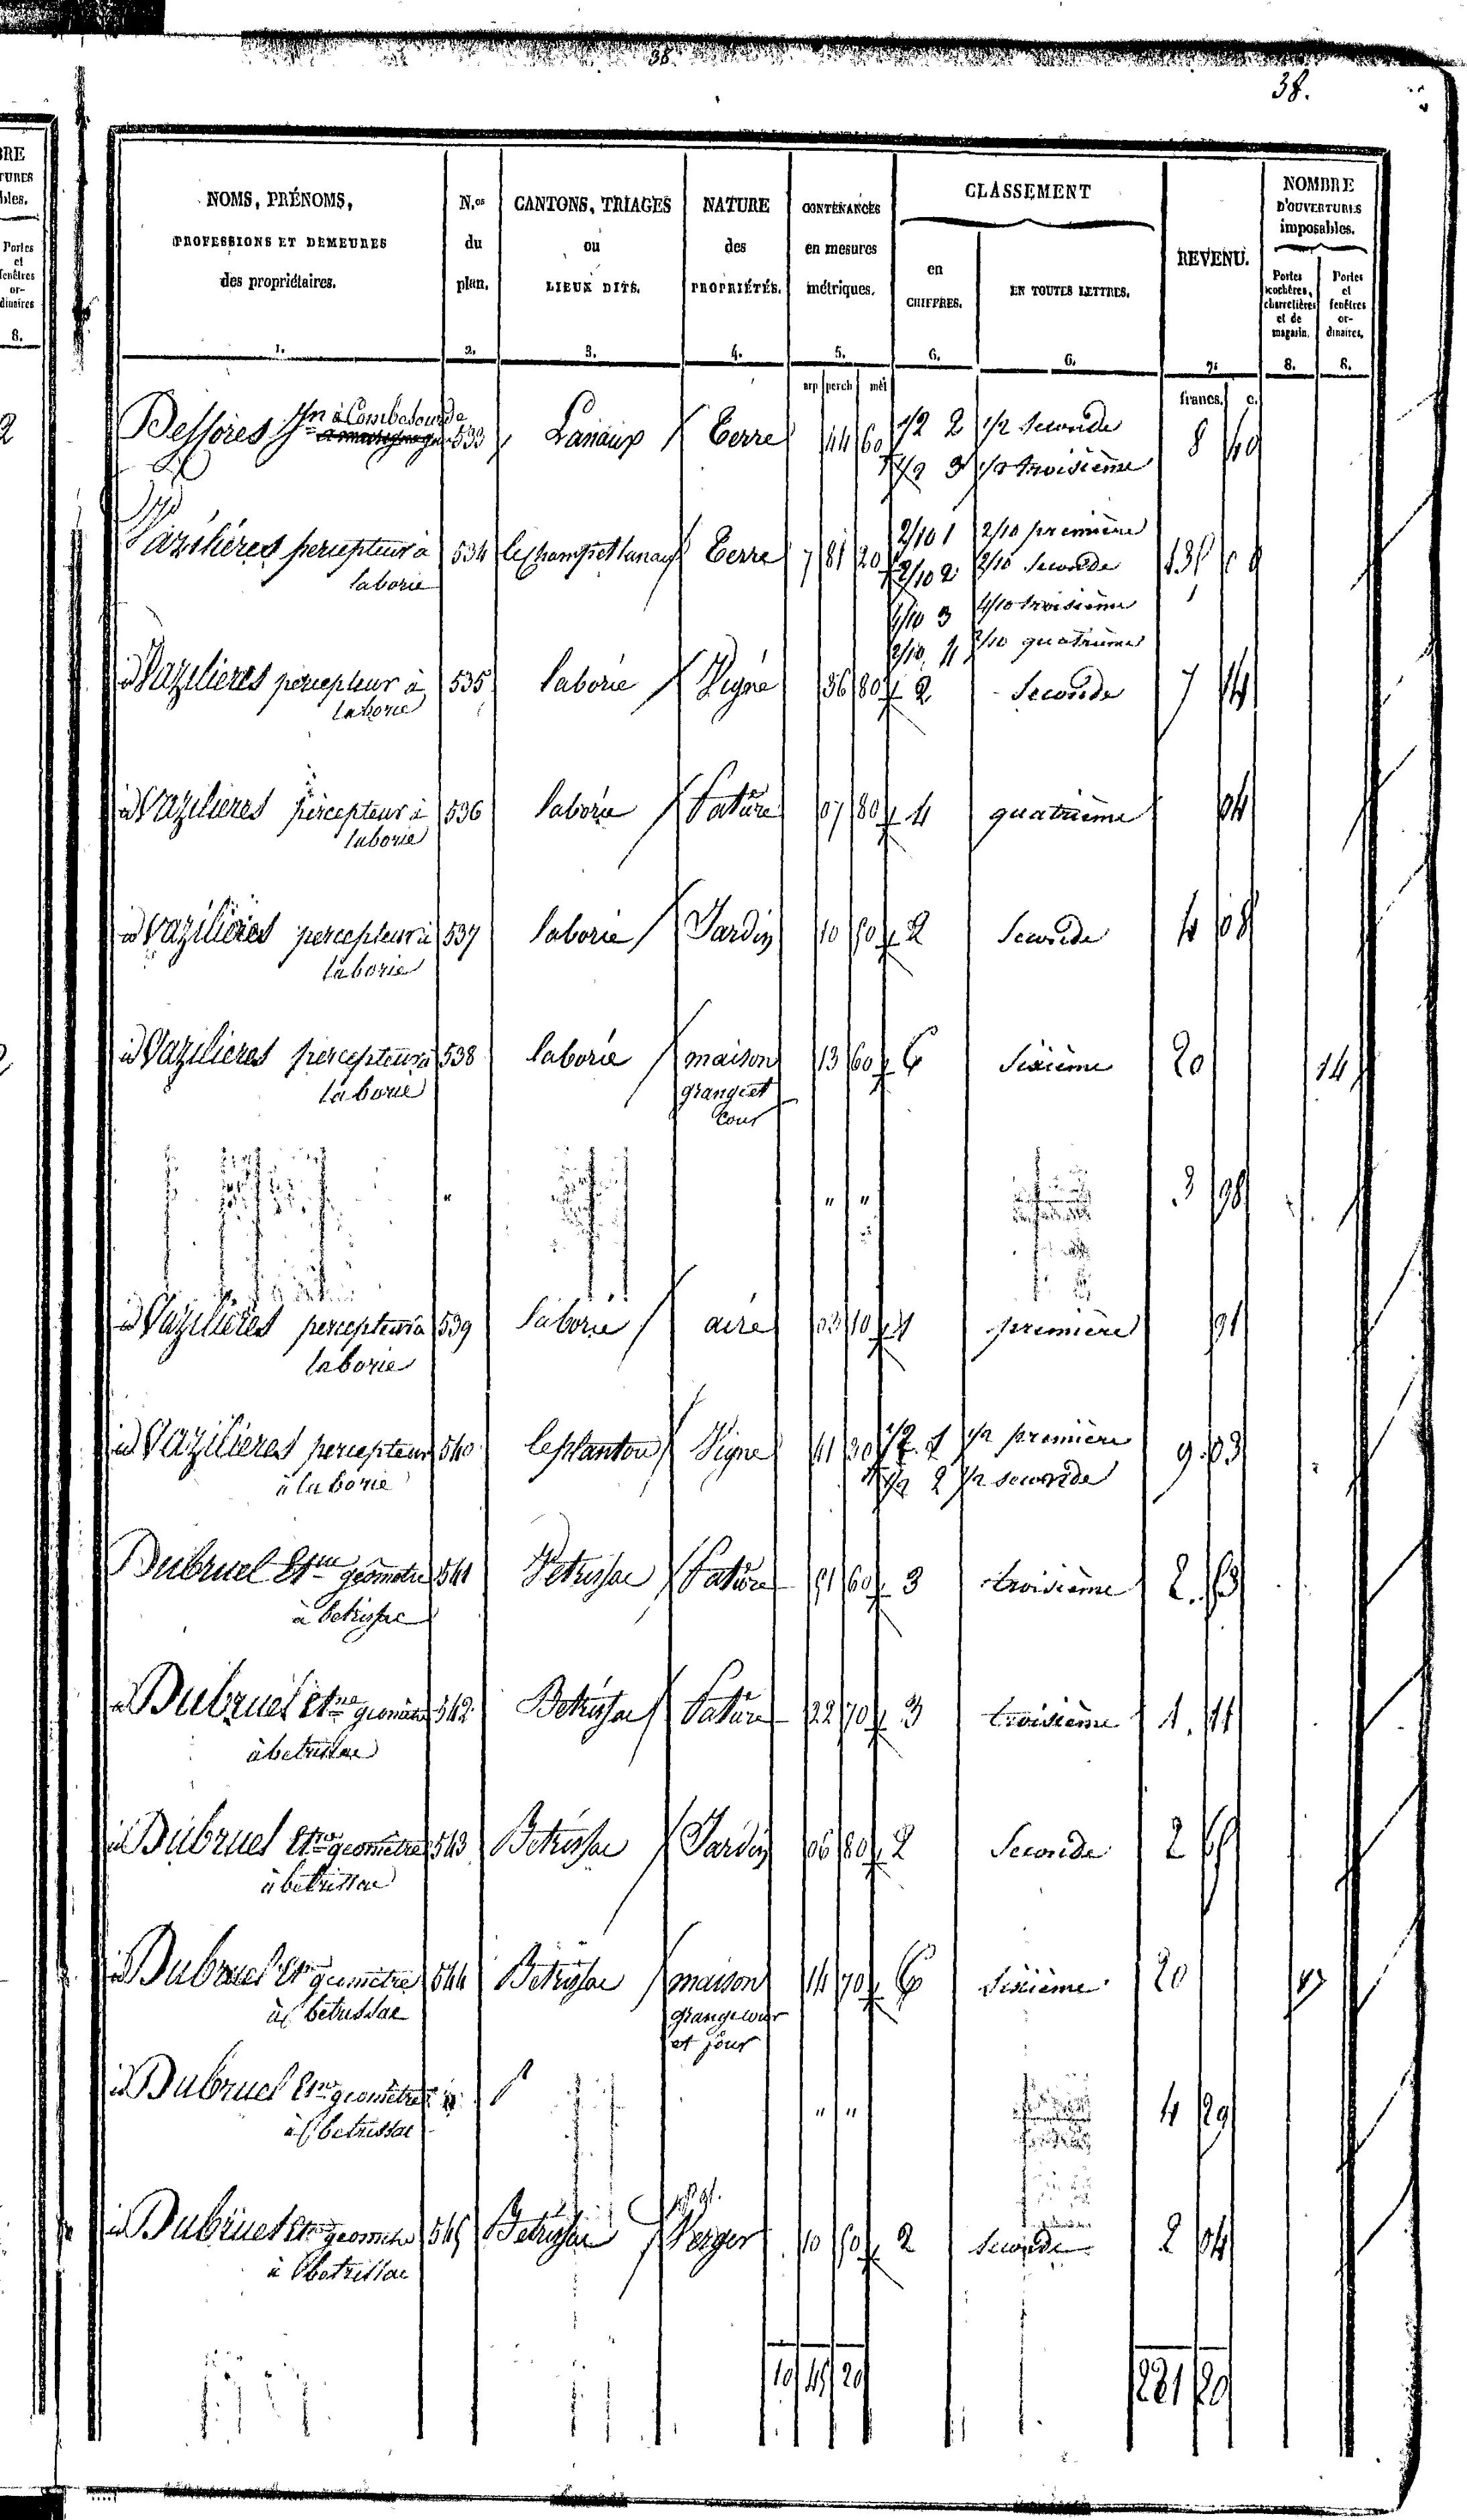 38.
38.
BRE
TURES
bles.
Portes
et
fenêtres
or-
dinaires
8.
NOMS, PRÉNOMS,
PROFESSIONS ET DEMEURES
des propriétaires.
1.
N.os
du
plan.
2.
CANTONS, TRIAGES
ou
LIEUX DITS.
3.
NATURE
des
PROPRIÉTÉS.
4.
CONTENANCES
en mesures
métriques.
5.
CLASSEMENT
en
CHIFFRES.
6.
EN TOUTES LETTRES.
6.
REVENU.
7.
NOMBRE
D'OUVERTURES
imposables.
Portes
cochères,
charretières
et de
magasin.
8.
Portes
et
fenêtres
or-
dinaires.
8.
arp perch mèt
francs. c.
à Combe
533 Lanaux Terre 44 60 1/2 2 1/2 seconde 8 40
1/2 3 1/2 troisième
Vazilières percepteur à 534 Terre 7 81 20 2/10 1 2/10 première
laborie
2/10 2 2/10 seconde
4/10 3 4/10 troisième
2/10 4 2/10 quatrième
id Vazilieres percepteur à 535 laborie Vigne 36 80 2 Seconde 7 14
laborie
id Vazilieres percepteur à 536 laborie Pature 07 80 4 quatrième 04
laborie
id Vazilieres percepteur à 537 laborie Jardin 10 2 Seconde 4 08
laborie
id Vazilieres percepteur à 538 laborie maison 13 60 6 Sixième 20 14
laborie grange et
cour
" " " 3 98
id Vazilieres percepteur à 539 laborie aire 03 10 1 première
laborie
id Vazilieres percepteur 540 Vigne 41 30 1/2 1 1/2 première 9 03
à laborie 1/2 2 1/2 seconde
Dubruel Etne géometre 541 Betrissac Pature 60 3 troisième 2
à betrissac
id Dubruel Etne géometre 542 Betrissac Pature 22 70 3 troisième 1 11
à betrissac
id Dubruel Etne géometre 543 Betrissac Jardin 06 80 2 Seconde 2
à betrissac
id Dubruel Etne géometre 544 Betrissac maison 14 70 6 Sixième 20
à betrissac grange cour
et jour
id Dubruel Etne géometre " " " 4 29
à betrissac
id Dubruel Etne géometre 545 Betrissac Verger 10 2 Seconde 2 04
à betrissac
10 45 20 221 29